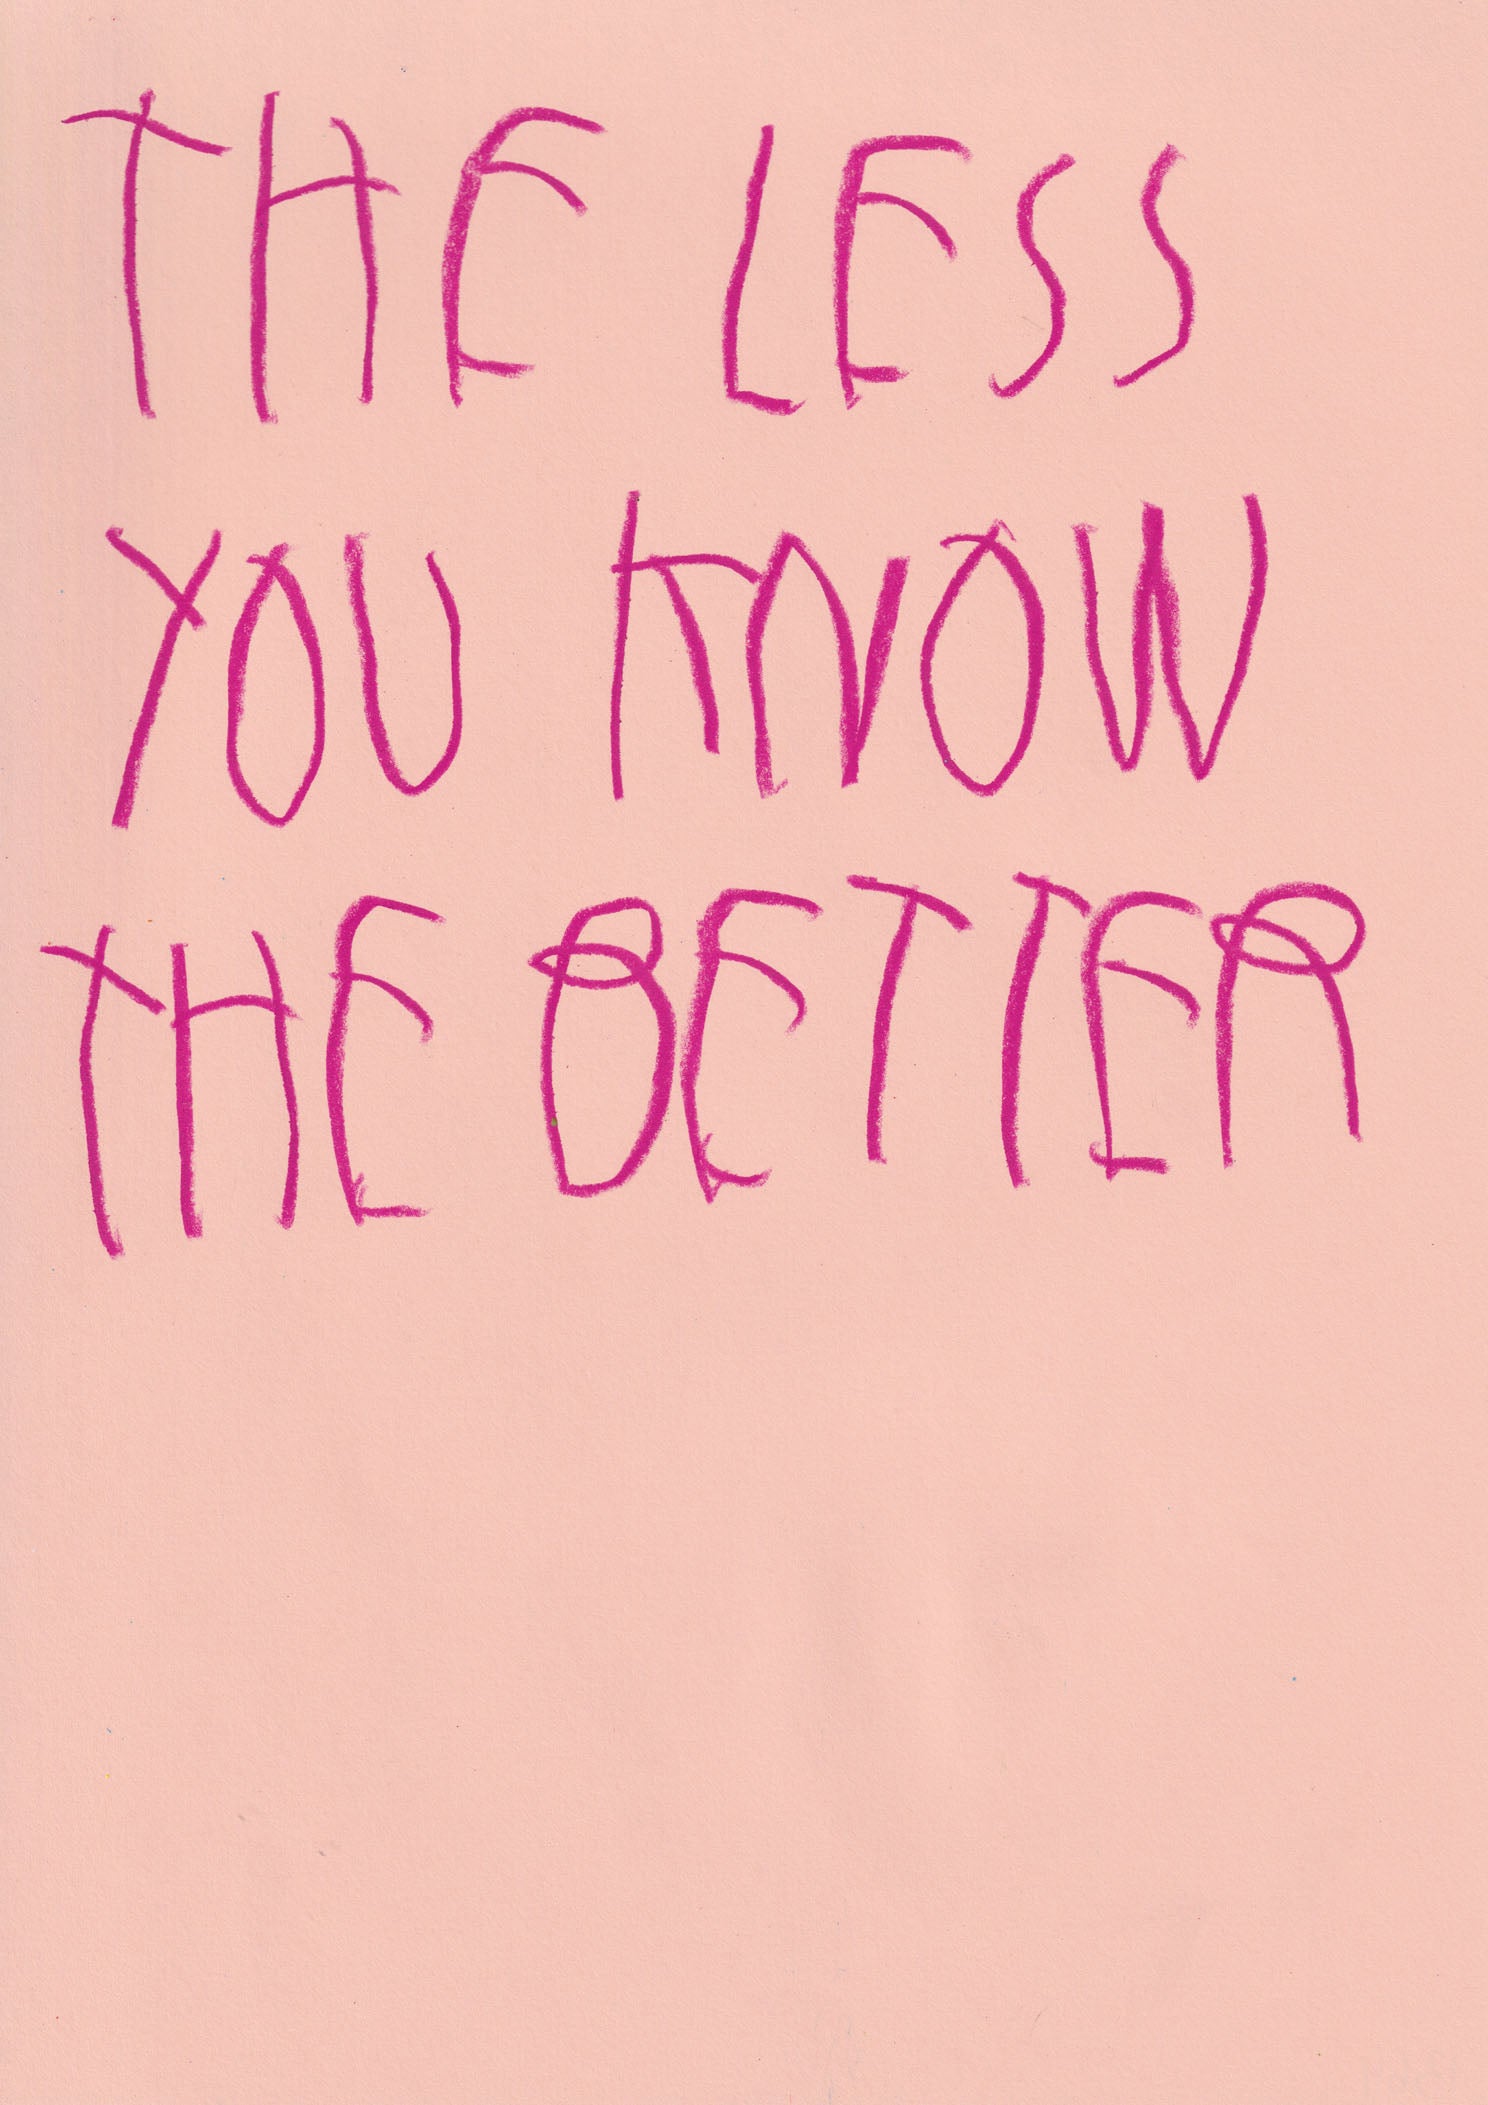 THE LESS
YOU KNOW
THE BETTER